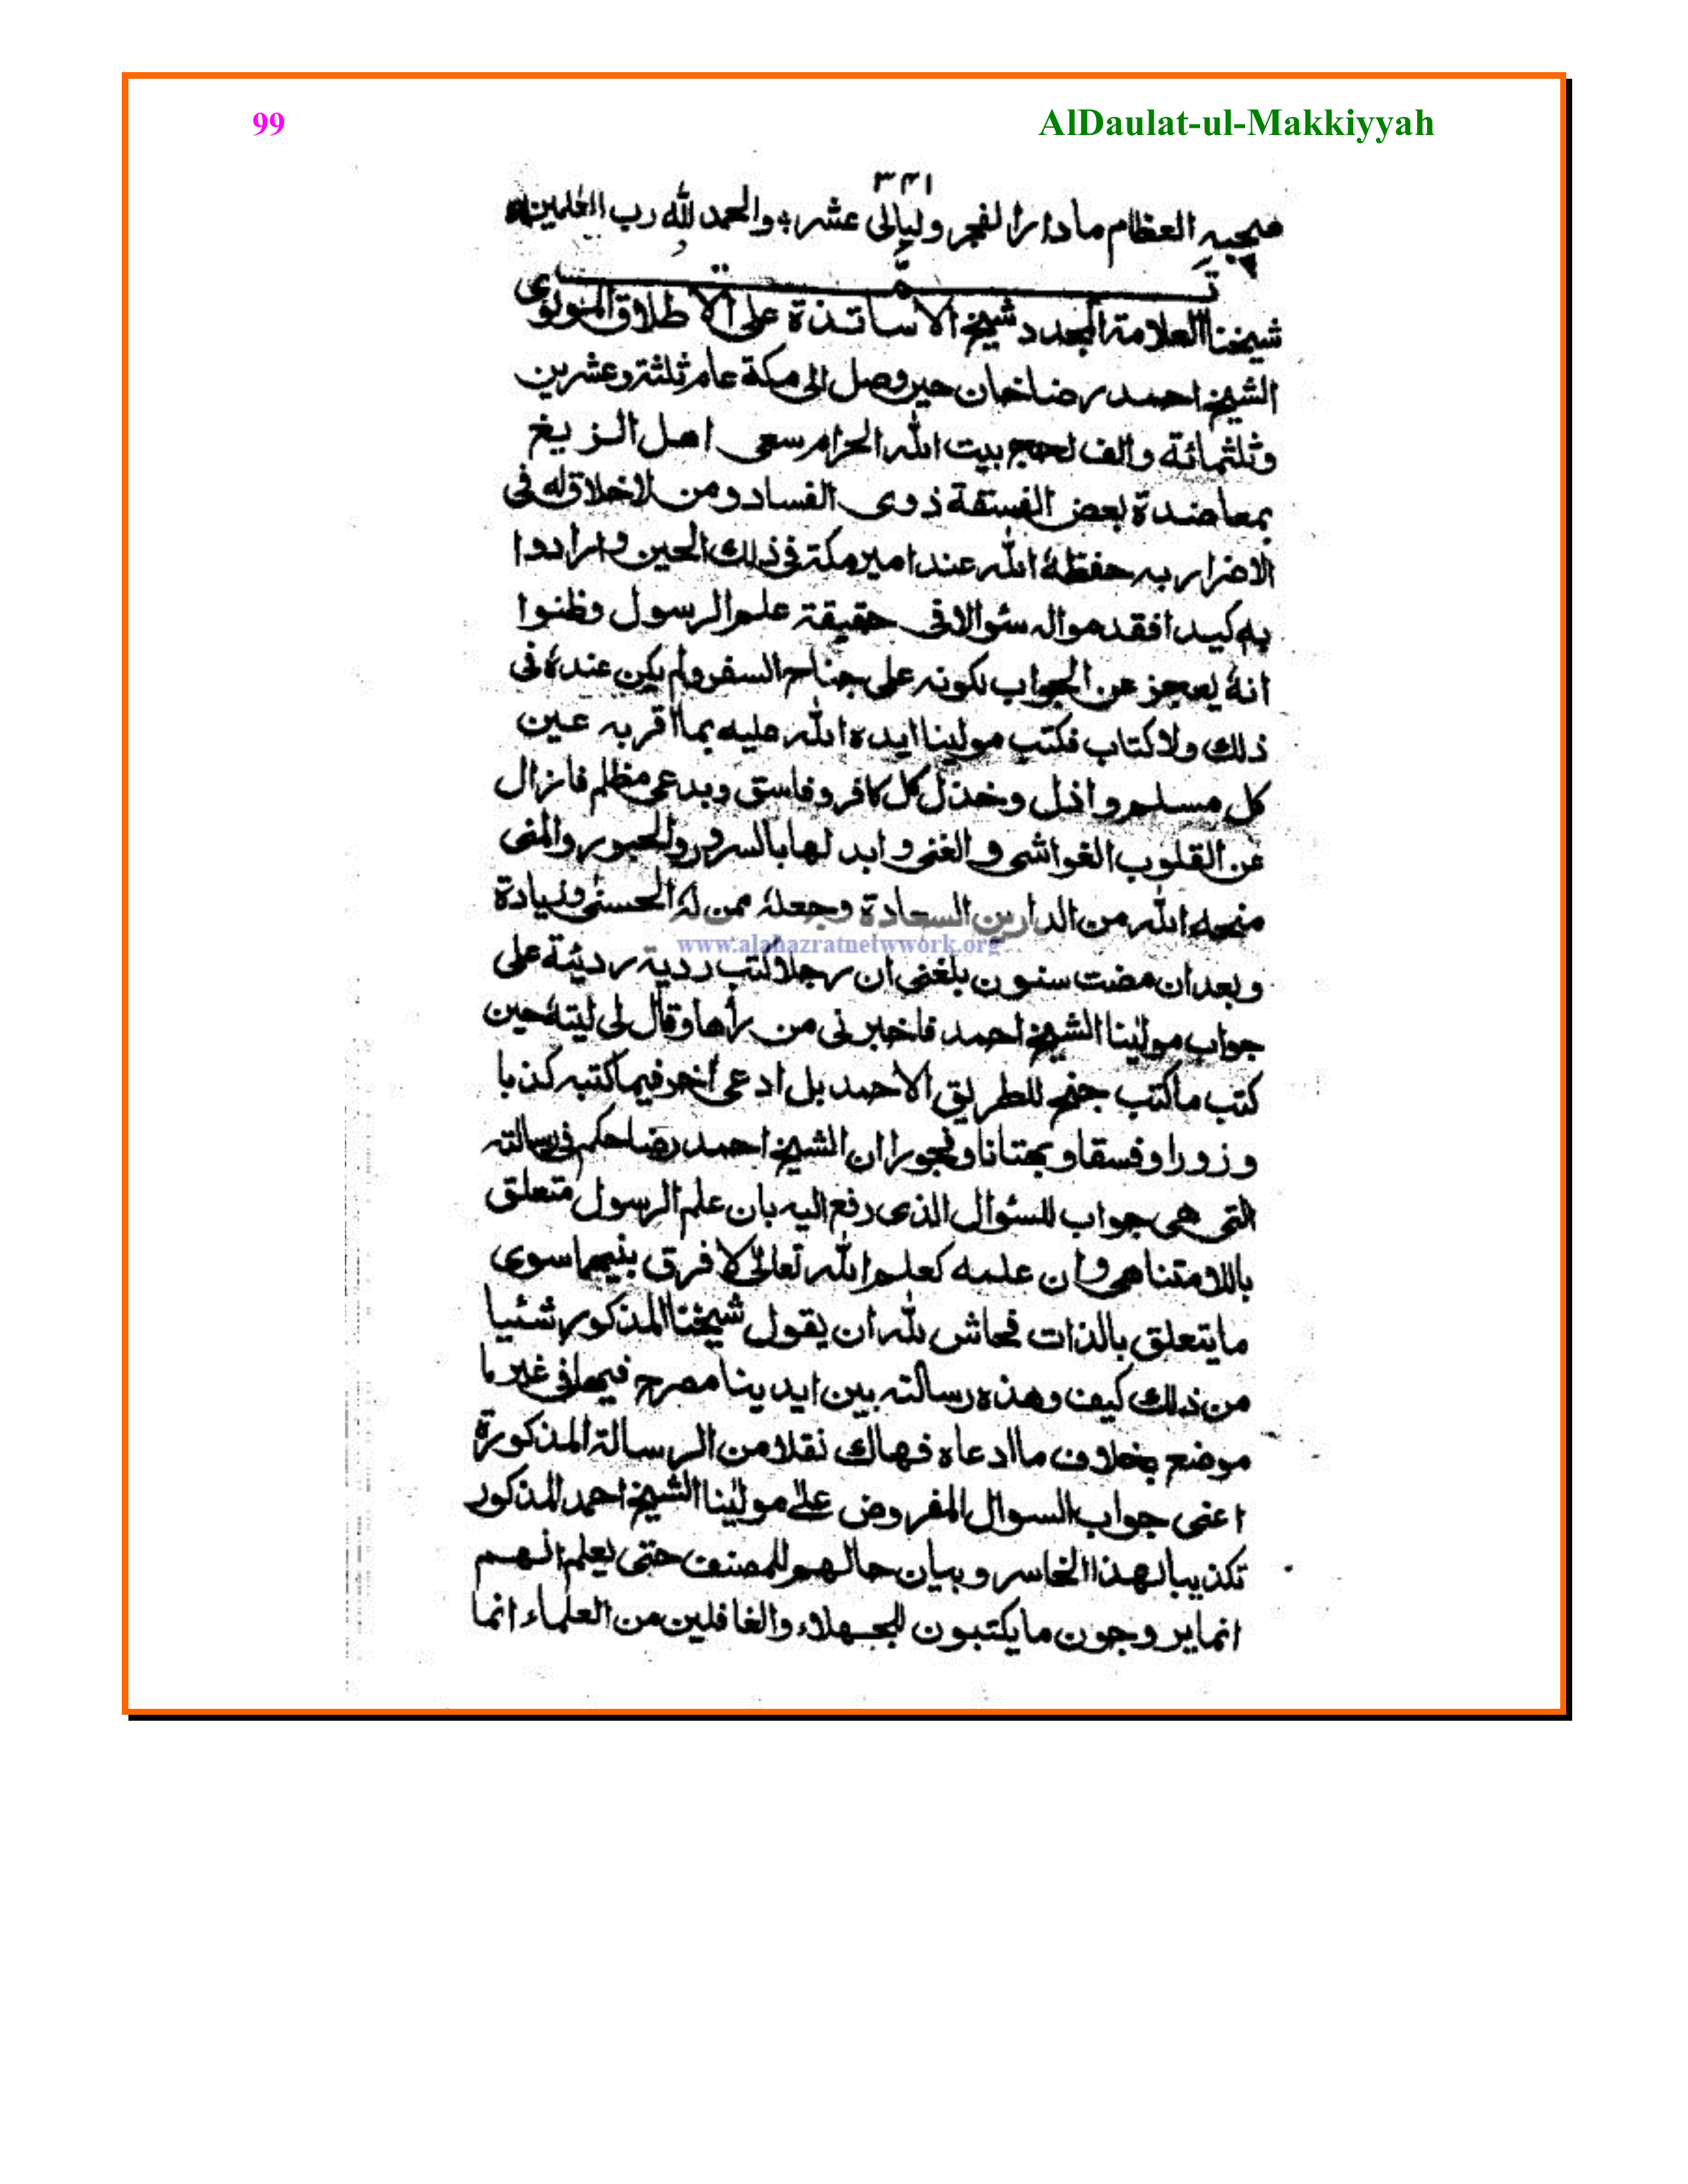 99
AlDaulat-ul-Makkiyyah
صحبه العظام مادار الفجر وليالى عشر والحمد لله رب العلمين
تمت
شيخنا العلامة المجدد شيخ الاساتذة على الاطلاق المولوى
الشيخ احمد رضا خان حين وصل الى مكة عام ثلثة وعشرين
وثلثمائة والف لحج بيت الله الحرام سعى اهل الزيغ
بمعاضدة بعض الفسقة ذوى الفساد ومن لاخلاق له فى
الاضرار به حفظه الله عند امير مكة فى ذلك الحين وارادوا
به كيدا فقدموا له سئوالا فى حقيقة علم الرسول وظنوا
انه يعجز عن الجواب لكونه على جناح السفر ولم يكن عنده فى
ذلك ولا كتاب فكتب مولينا ايده الله عليه بما اقر به عين
كل مسلم واذل وخذل كل كافر وفاسق وبدعى مظلم فازال
عن القلوب الغواشى و الغنى و ابدلها بالسرور والحبور والمنى
منحه الله من الدارين السعادة وجعله ممن له الحسنى وزيادة
وبعد ان مضت سنون بلغنى ان رجلا كتب ردية رديئة على
جواب مولينا الشيخ احمد فاخبرنى من رأها وقال لى ليته حين
كتب ما كتب جنح للطريق الاحمد بل ادعى أخر فيما كتبه كذبا
وزورا وفسقا وبهتانا وفجورا ان الشيخ احمد رضا حكم فى رسالته
التى هى جواب للسئوال الذى رفع اليه بان علم الرسول متعلق
باللامتناهى وان علمه كعلم الله تعالى لا فرق بينهما سوى
ما يتعلق بالذات فحاش لله ان يقول شيخنا المذكور شئيا
من ذلك كيف وهذه رسالته بين ايدينا مصرح فيها فى غير ما
موضع بخلاف ما ادعاه فهاك نقلا من الرسالة المذكورة
اعنى جواب السوال المفروض على مولينا الشيخ احمد المذكور
تكذيبا لهذا الخاسر وبيان حالهم للمصنف حتى يعلم انهم
انما يروجون ما يكتبون للجهلاء والغافلين من العلماء انما
www.alahazratnetwork.org